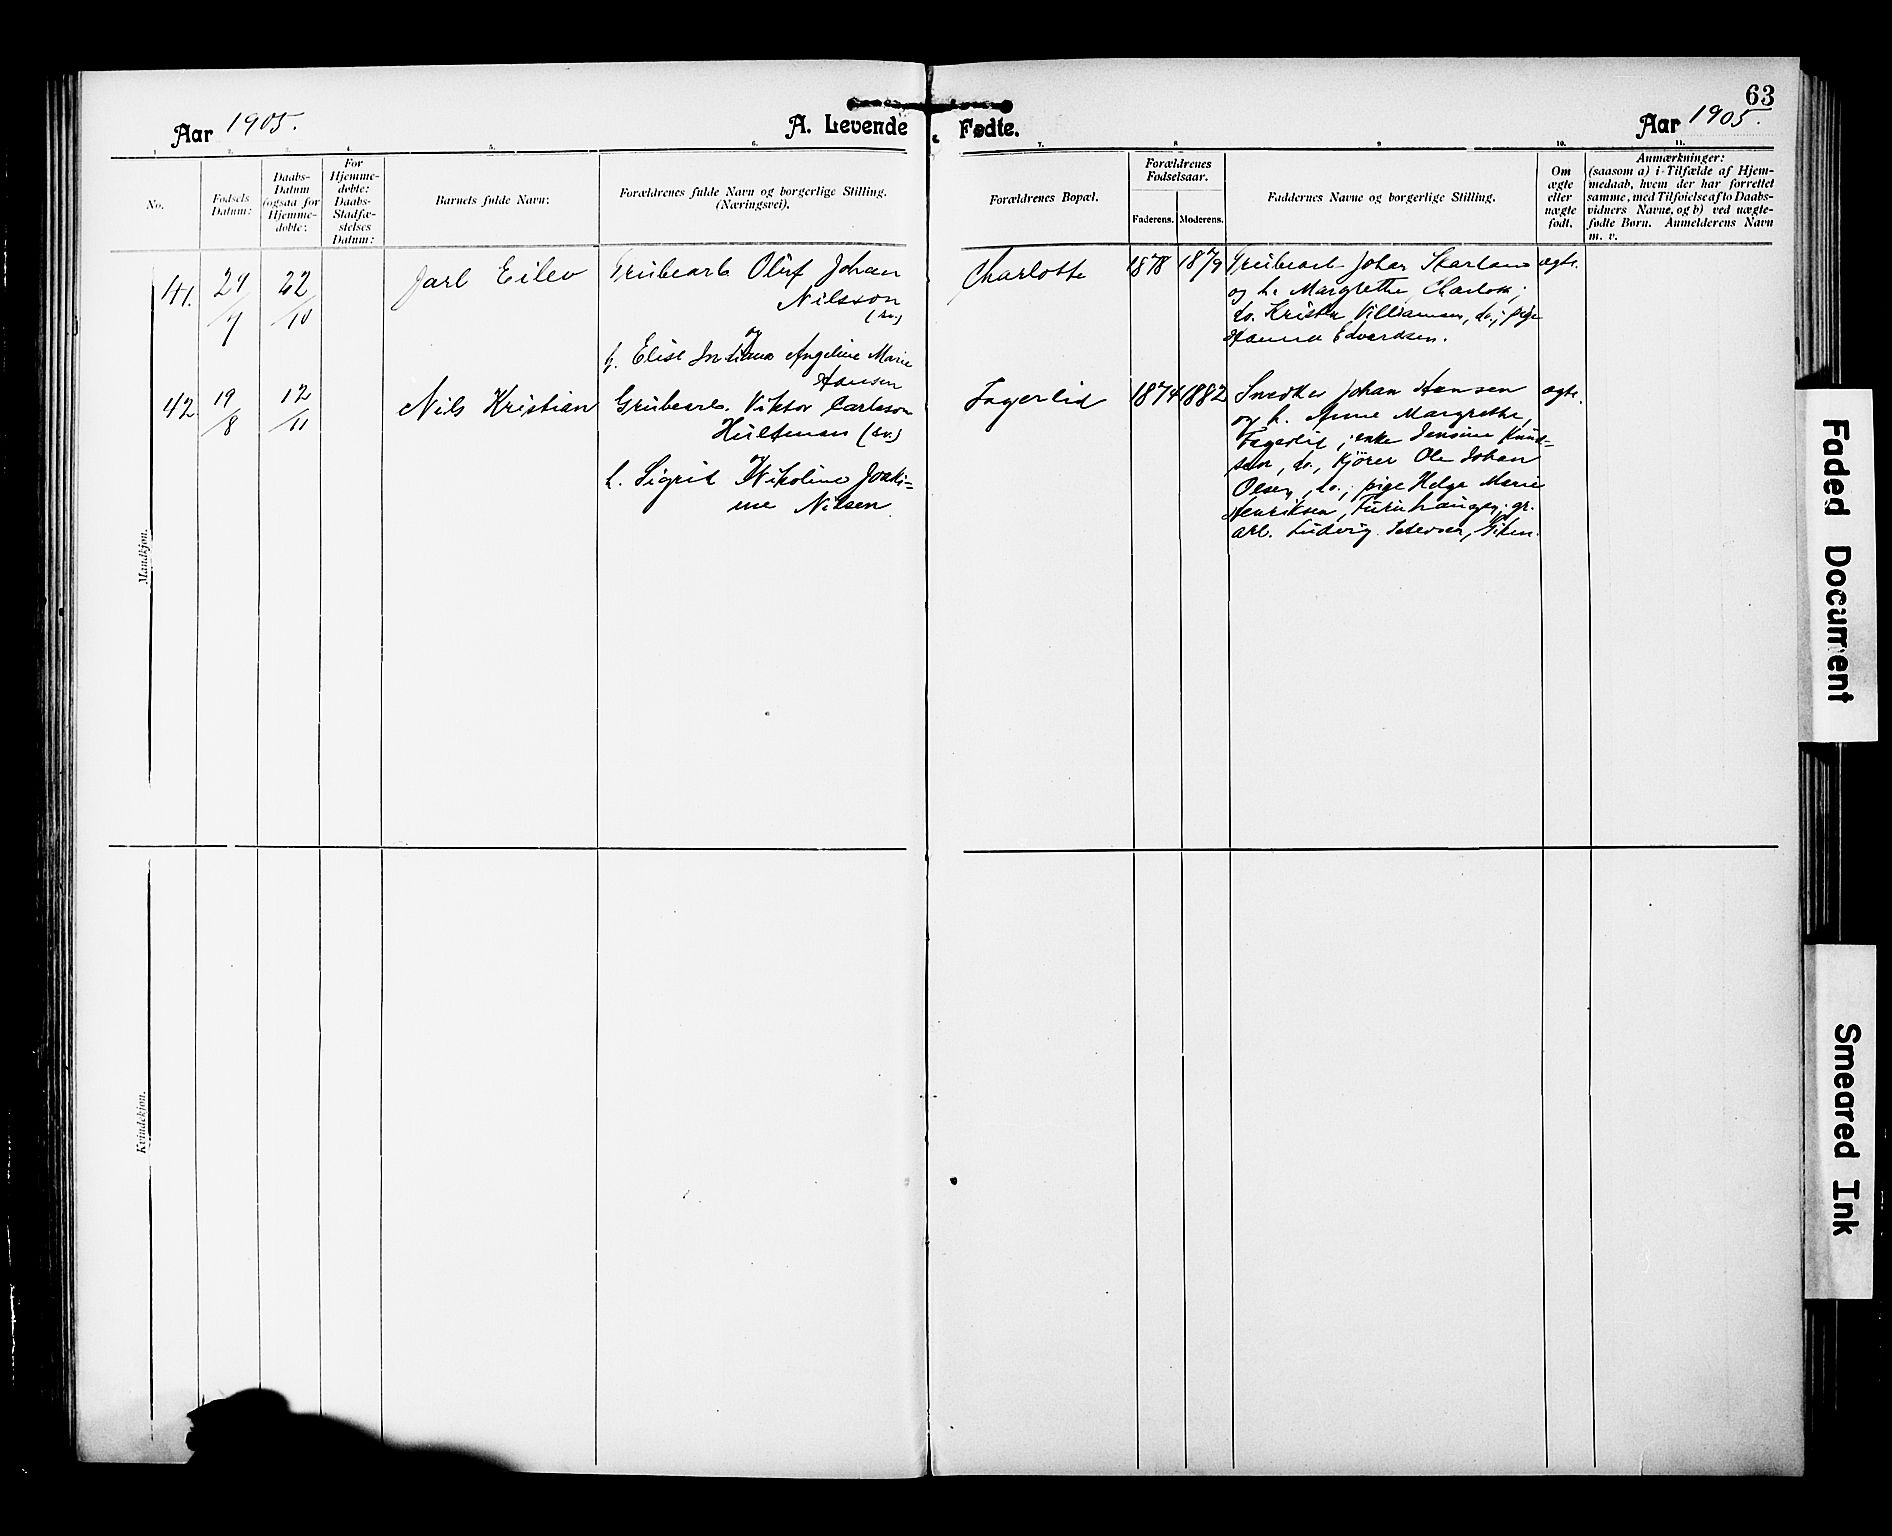 63
Aar 1905.
A. Levende Fødte.
Aar 1905.
1. 2. 3. 4. 5. 6. 7. 8. 9. 10. 11.
No.
Fødsels
Datum:
Daabs-
Datum
(ogsaa for
Hjemme-
døbte:
For
Hjemme-
døbte:
Daabs-
Stadfæ-
stelses
Datum:
Barnets fulde Navn:
Forældrenes fulde Navn og borgerlige Stilling.
(Næringsvei).
Forældrenes Bopæl.
Forældrenes
Fødselsaar.
Faderens. Moderens.
Faddernes Navne og borgerlige Stilling.
Om
ægte
eller
uægte
født.
Anmærkninger:
(saasom a) i Tilfælde af Hjem-
medaab, hvem der har forrettet
samme, med Tilføielse af to Daabs-
vidners Navne, og b) ved uægte-
fødte Børn. Anmelderens Navn
m. v.
Mandkjøn.
41.
24/7
22/10
Jarl Eilev
Grubearb. Oluf Johan
Nilsson
(sv.)
og
h. Elise Angeline Marie
Hansen
Charlotte
1878 1879
Grubearb. Johan
og h. Margrethe, Charlott;
do. Villiamsen, do.; pige
Hanna Edvardsen.
ægte.
42.
19/8
12/11
Nils Kristian
Grubearb. Viktor Carlsson
Hultman (sv.)
og
h. Sigrid Nikoline Joaki=
me Nilsen
Fagerlid
1874 1882
Snedker Johan Hansen
og h. Anne Margrethe,
Fagerlid; enke Jensine Knud=
sen, do., Kjører Ole Johan
Olsen, do.; pige Helga Marie
Henriksen, Furuhaugen; gr.
arb. Ludvig
ægte.
Kvindekjøn.
Faded Document
Smeared Ink